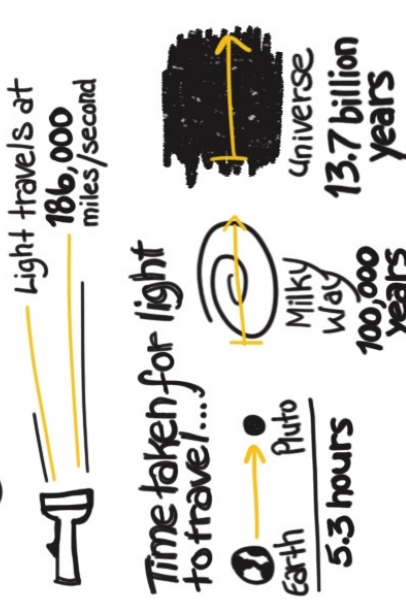 Light travels at
186,000
miles/second
Time taken for light
to travel...
Earth
Pluto
5.3 hours
Milky
Way
100,000
years
Universe
13.7 billion
years